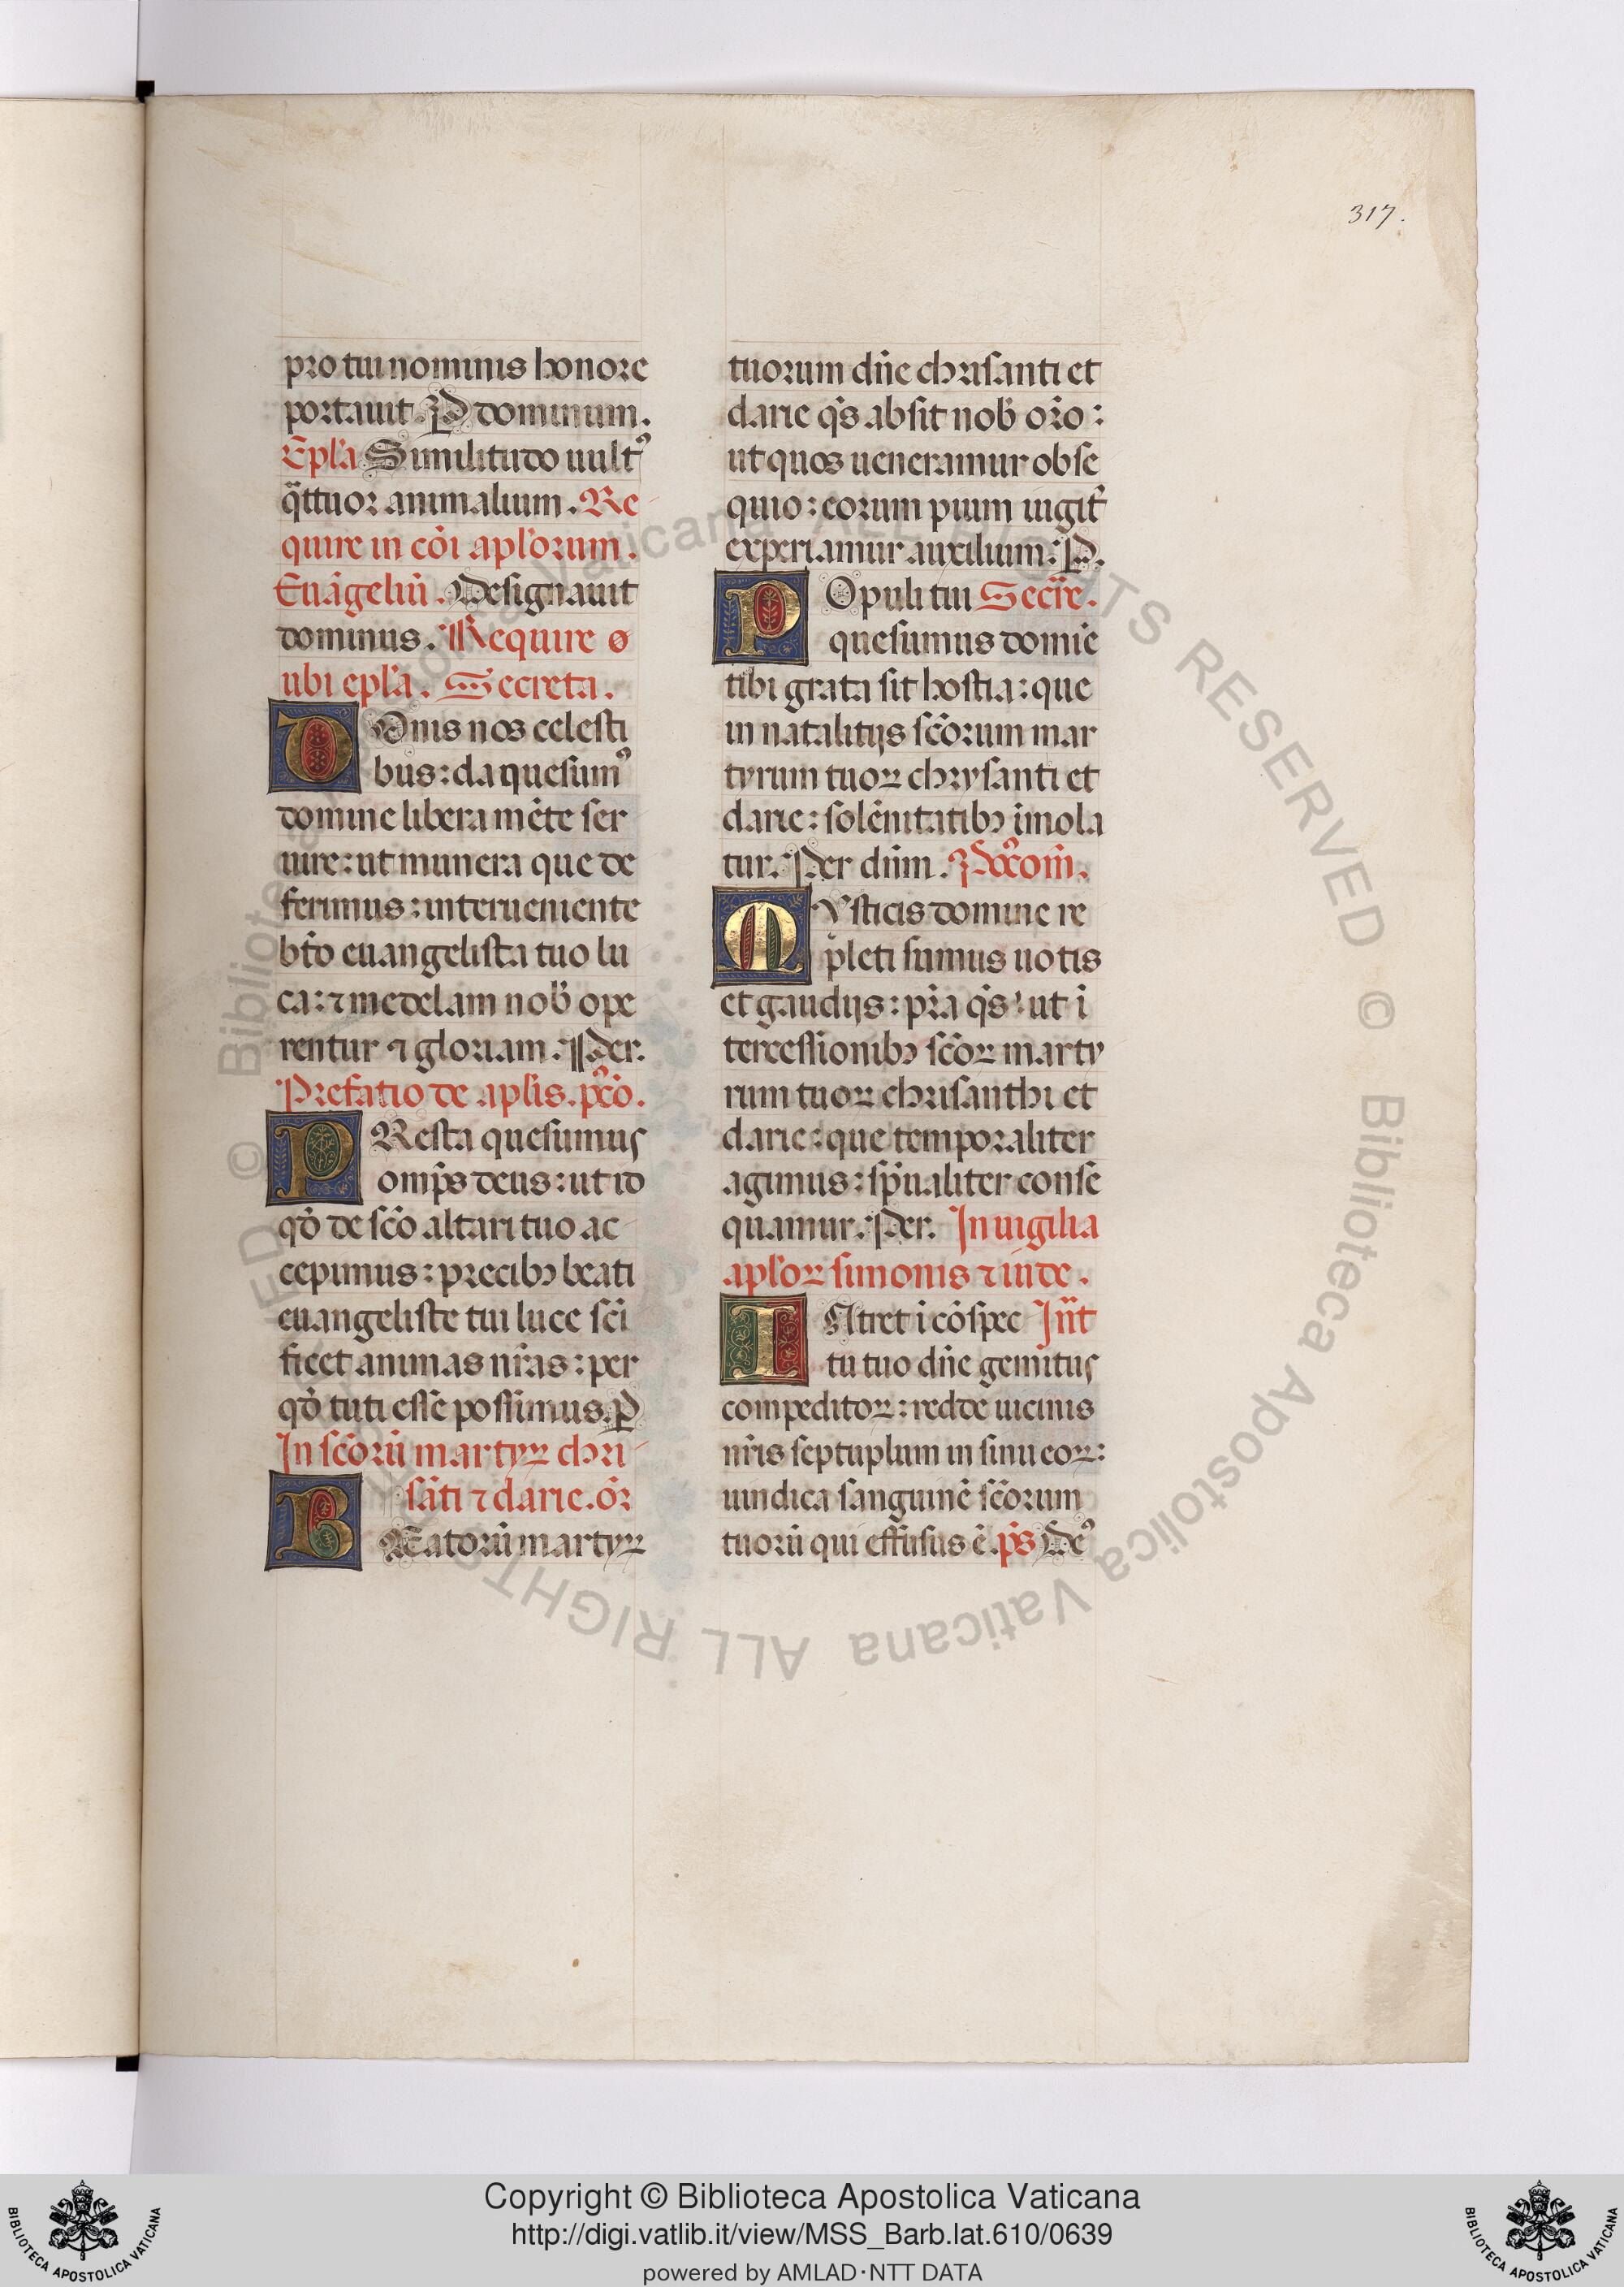 317.
pro tui nominis honore
portauit. P dominum.
Epl'a Similitudo uult9
q̃ttuor animalium. Re
quire in cōi apl'orum.
Euāgeliū. Designauit
dominus. Require ø
ubi epl'a. Secreta.
DOnis nos celesti
bus: da quesum9
domine libera mēte ser
uire: ut munera que de
ferimus: interueniente
bt̄o euangelista tuo lu
ca: ⁊ medelam nob̄ ope
rentur ⁊ gloriam. Per.
Prefatio de aplīs. p9cō.
PResta quesumus
omp̄s deus: ut id
qō de scō altari tuo ac
cepimus: precibꝫ beati
euangeliste tui luce sc̄i
ficet animas nr̄as: per
qō tuti esse possimus. P
In sc̄orū martyꝝ chri
sāti ⁊ darie. ōꝛ
BEatorū martyꝝ
tuorum dn̄e chrisanti et
darie qs̄ absit nob̄ orō:
ut quos ueneramur obse
quio: eorum pium iugit̄
experiamur auxilium. P.
POpuli tui Secr̄e.
quesumus domīe
tibi grata sit hostia: que
in natalitijs sc̄orum mar
tyrum tuoꝝ chrysanti et
darie: solēnitatibꝫ īmola
tur. Per dn̄m. P9com̄.
MYsticis domine re
pleti sumus uotis
et gaudijs: pr̄a qs̄: ut ī
tercessionibꝫ sc̄oꝝ marty
rum tuoꝝ chrisanthi et
darie: que temporaliter
agimus: sp̄ualiter conse
quamur. Per. In uigilia
apl'oꝝ simonis ⁊ iude.
INtret ī cōspec Int̄
tu tuo dn̄e gemitus
compeditoꝝ: redde uicinis
nr̄is septuplum in sinu eoꝝ:
uindica sanguinē sc̄orum
tuorū qui effusus ē. ps̄ De9
Copyright © Biblioteca Apostolica Vaticana
http://digi.vatlib.it/view/MSS_Barb.lat.610/0639
powered by AMLAD·NTT DATA
BIBLIOTECA APOSTOLICA VATICANA
BIBLIOTECA APOSTOLICA VATICANA
© Biblioteca Apostolica Vaticana ALL RIGHTS RESERVED © Biblioteca Apostolica Vaticana ALL RIGHTS RESERVED